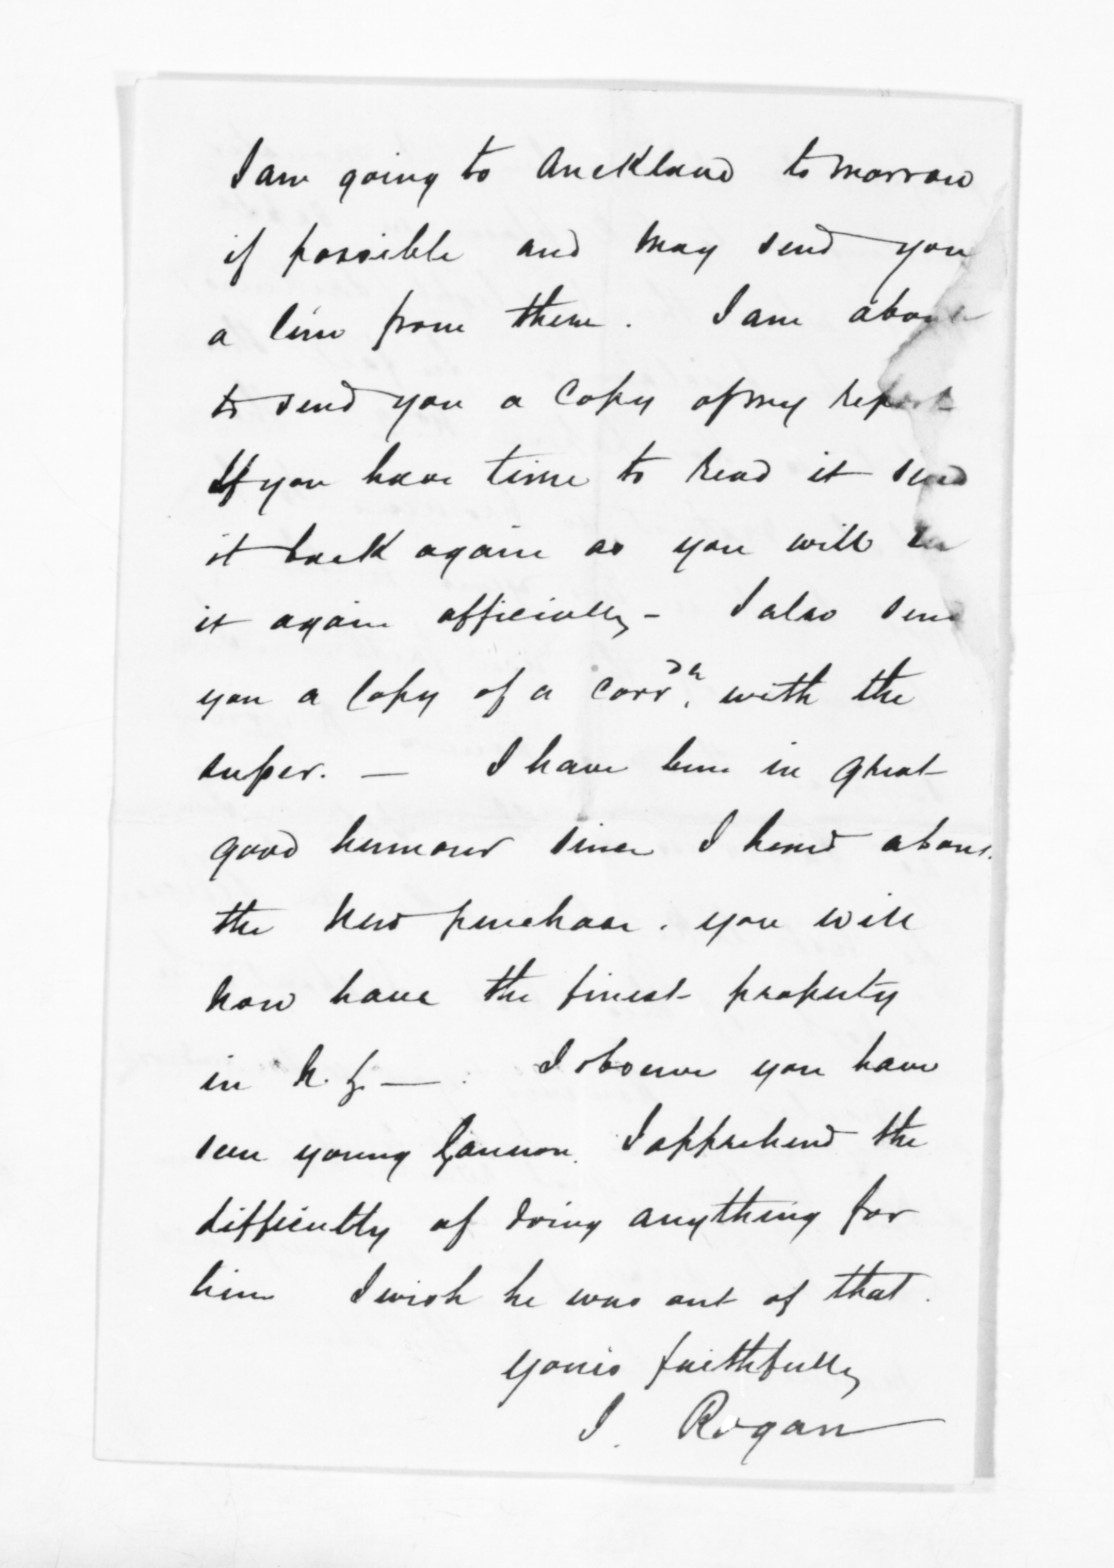 I am going to Auckland tomorrow
if possible and may send you
a line from there. I am about
to send you a copy of my report
If you have time to read it send
it back again as you will
it again officially - I also send
you a copy of a corrdn. with the
super. — I have been in great
good humour since I heard about
the new purchase. you will
now have the finest property
in N. Z — . I observe you have
seen young Gannon. I apprehend the
difficulty of doing anything for
him I wish he was out of that.
yours faithfully
J. Rogan